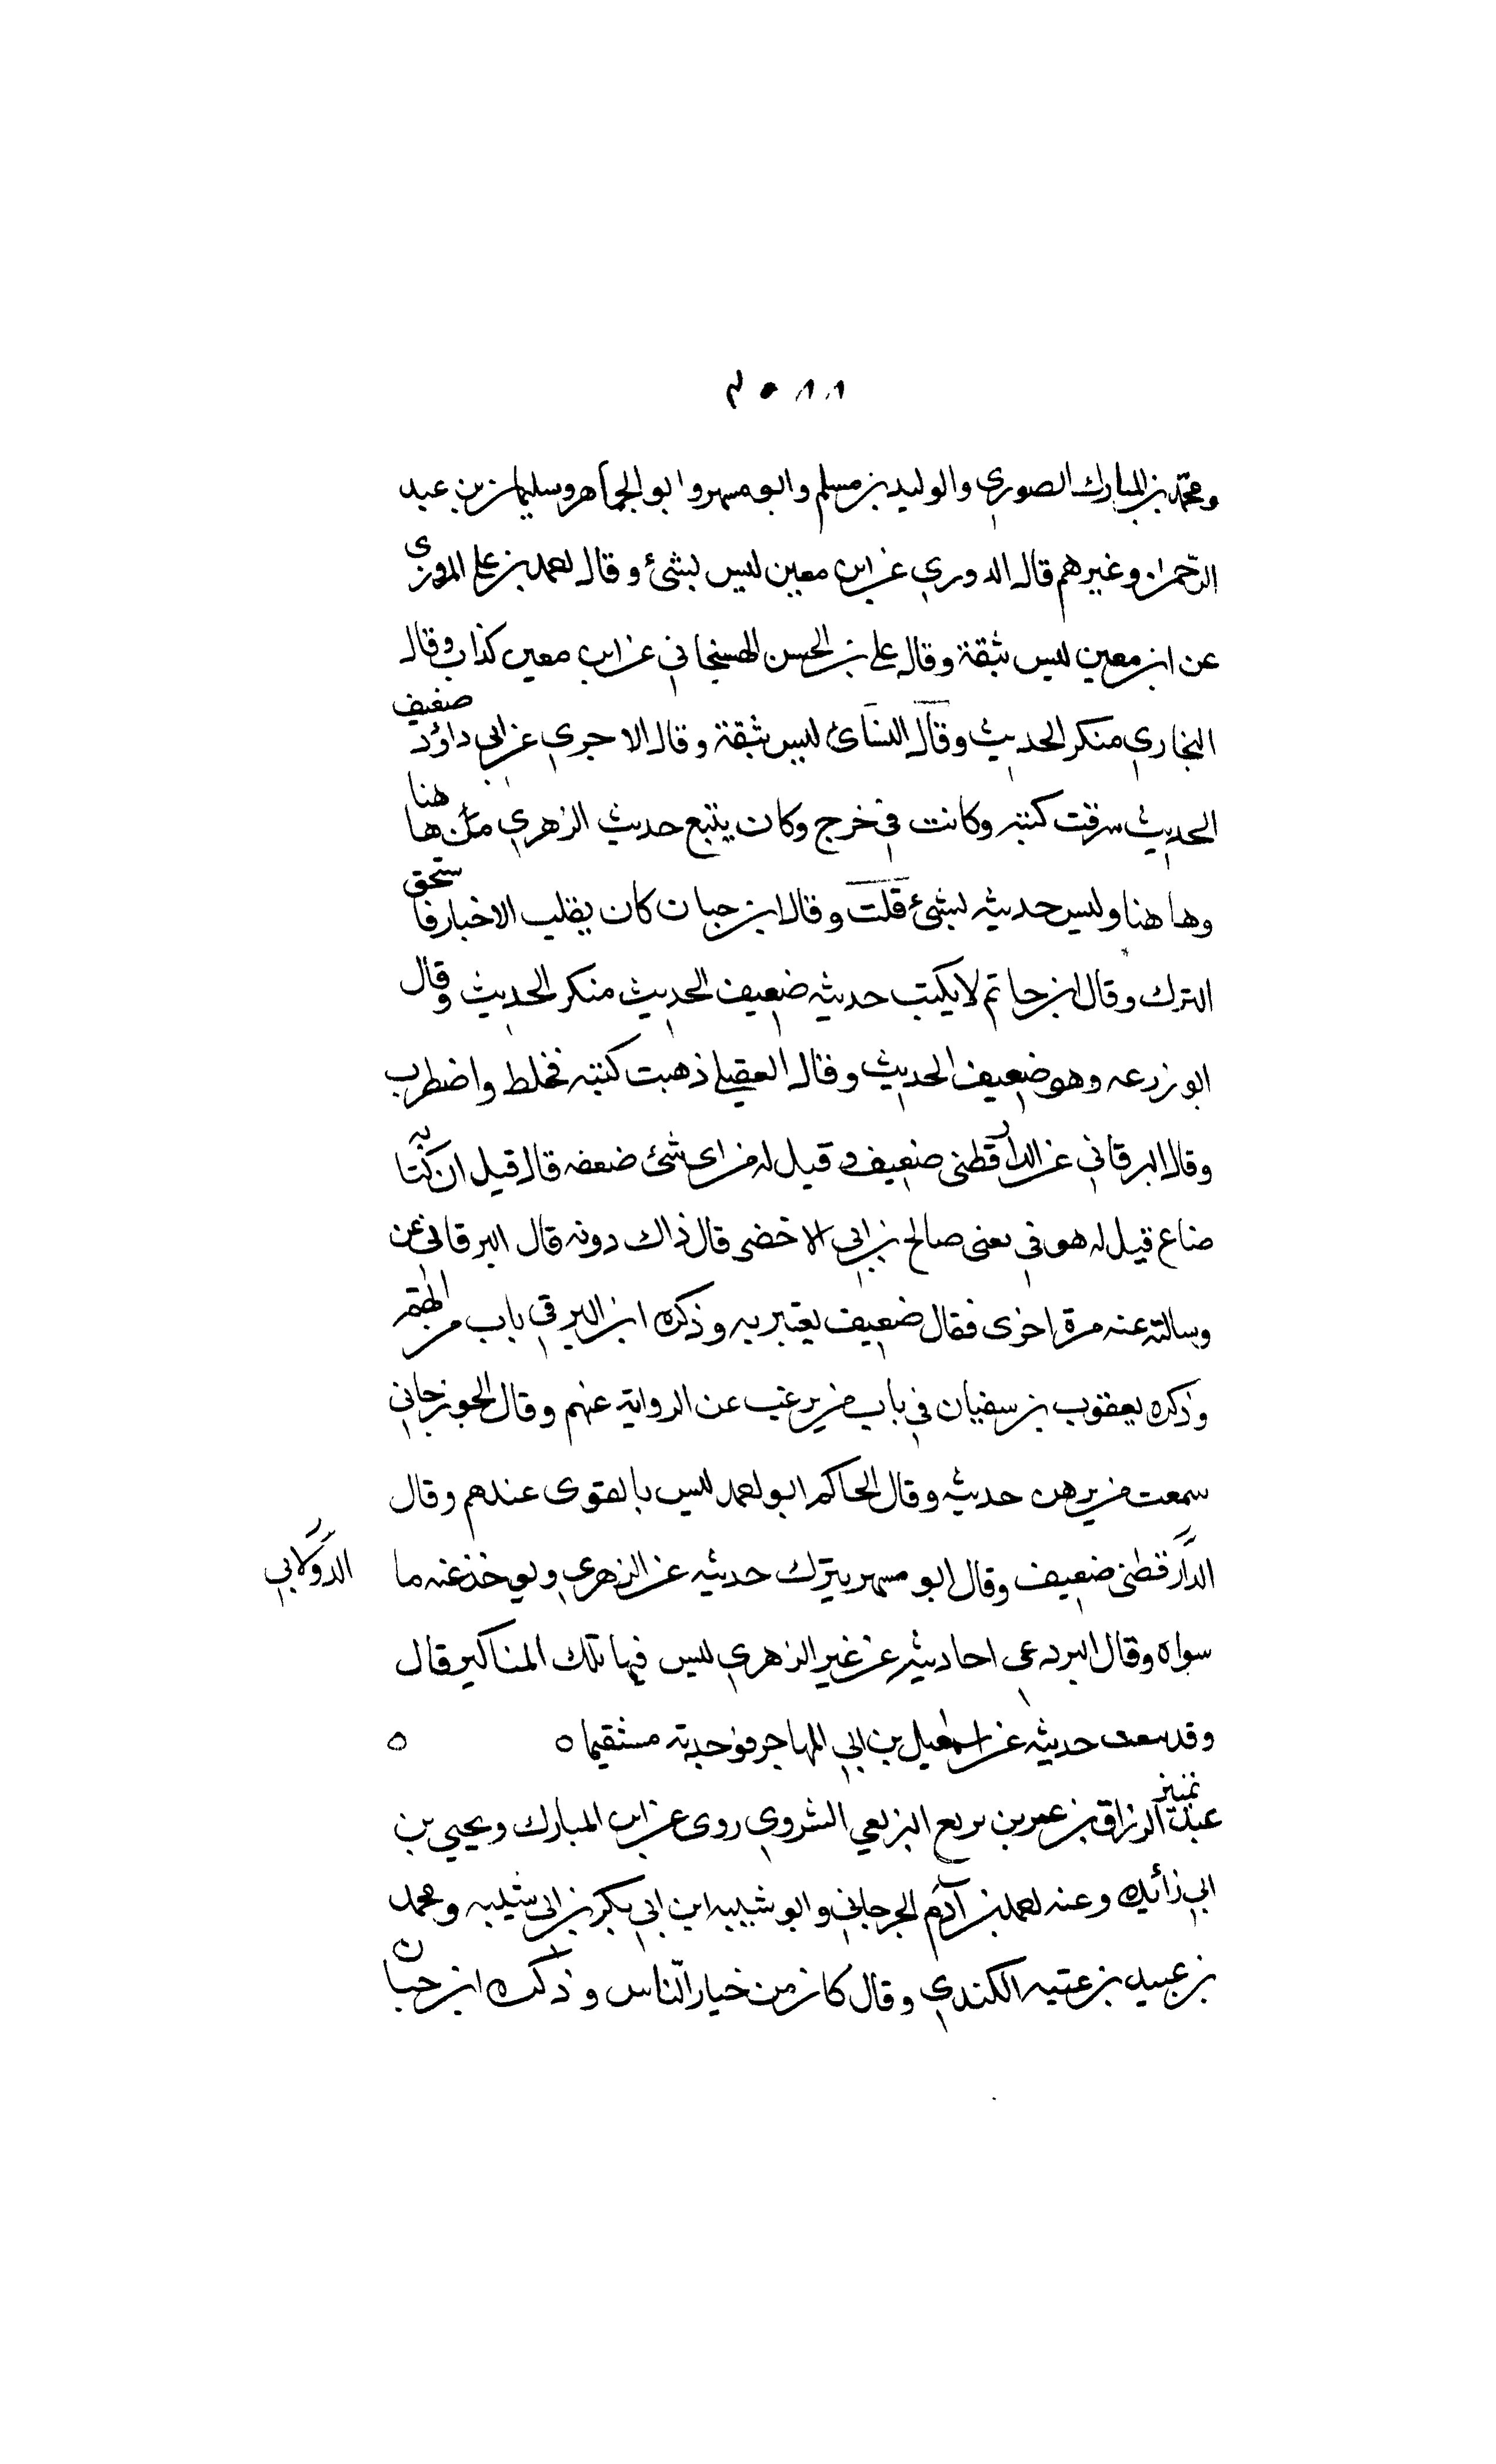 ومحمد بن المبارك الصوري والوليد بن مسلم وابو مسهر وابو الجماهر وسليمان بن عبد
الرحمان وغيرهم قال الدوري عن ابن معين ليس بشئ وقال احمد بن علي المروزي
عن ابن معين ليس بثقة وقال علي بن الحسن الهسنجاني عن ابن معين كذاب وقال
البخاري منكر الحديث وقال النسائ ليس بثقة وقال الاجري عن ابي داؤد ضعيف
الحديث سرقت كتبه وكانت في خرج وكان يتبع حديث الزهري من ها هنا
وها هنا وليس حديثه بشئ قلت وقال ابن حبان كان يقلب الاخبار فاستحق
الترك وقال ابن حاتم لا يكتب حديثه ضعيف الحديث منكر الحديث وقال
ابو زرعه وهو ضعيف الحديث وقال العقيلي ذهبت كتبه فخلط واضطرب
وقال البرقاني عن الدارقطنى ضعيف وقيل له من اى شئ ضعفه قال قيل ان كتابه
ضاع قيل له هو في معنى صالح بن ابي الاخضر قال ذاك دونه قال البرقاني عن
وسالته عنه مرة اخرى فقال ضعيف يعتبر به وذكره ابن البرقي باب من اتهم
وذكره يعقوب بن سفيان في باب من يرغب عن الرواية عنهم وقال الجوزجاني
سمعت من يرهن حديثه وقال الحاكم ابو احمد ليس بالقوى عندهم وقال
الدارقطنى ضعيف وقال ابو مسهر يترك حديثه عن الزهري ويوخذ عنه ما
الدولابي
سواه وقال البردعى احاديثه عن غير الزهري ليس فيها تلك المناكير قال
وقد سمعت حديثه عن اسمعيل بن ابي المهاجر فوجدته مستقيما ه ه
تمييز
عبد الرزاق بن عمر بن بريع البزيعي الشروي روى عن ابن المبارك ويحيي بن
ابي زائده وعنه احمد بن آدم الجرجاني وابو شيبه ابن ابي بكر بن ابي شيبه ومحمد
بن عبيد بن عتبه الكندي وقال كان من خيار الناس وذكره ابن حبان